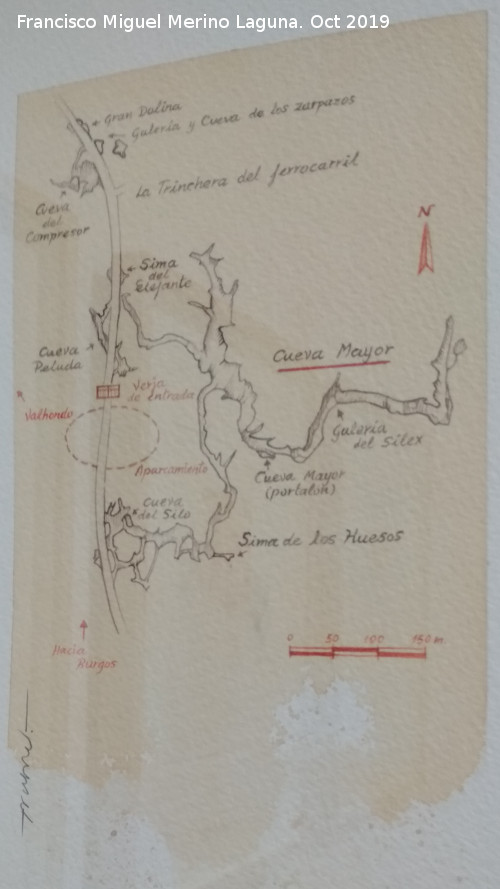 Francisco Miguel Merino Laguna. Oct 2019
Gran Dolina
Galería y Cueva de los zarpazos
La Trinchera del ferrocarril
Cueva
del
Compresor
N
Sima
del
Elefante
Cueva Mayor
Cueva
Peluda
Verja
de entrada
Valhondo
Galería
del Silex
Aparcamiento
Cueva Mayor
(portalón)
Cueva
del Silo
Sima de los Huesos
0 50 100 150 m.
Hacia
Burgos